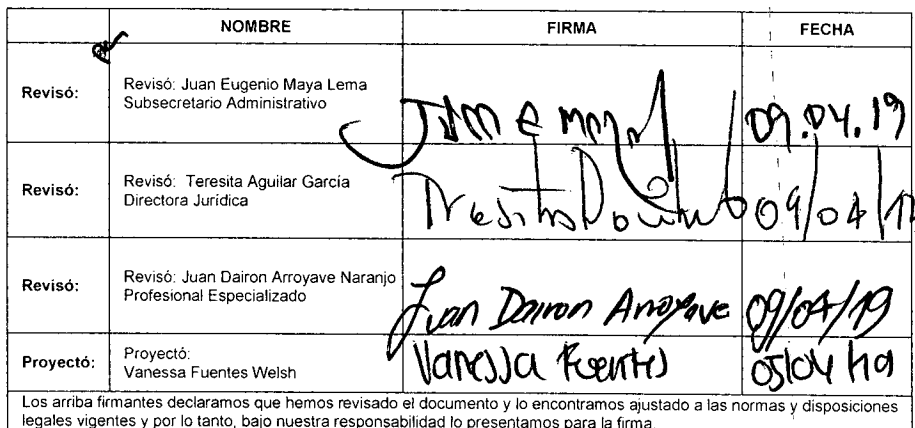 NOMBRE FIRMA FECHA
Revisó: Revisó: Juan Eugenio Maya Lema
Subsecretario Administrativo
09.04.19
Revisó: Revisó: Teresita Aguilar García
Directora Jurídica
09/04/
Revisó: Revisó: Juan Dairon Arroyave Naranjo
Profesional Especializado
Juan Dairon Arroyave 09/04/19
Proyectó: Proyectó:
Vanessa Fuentes Welsh
Vanessa Fuentes 05/04/19
Los arriba firmantes declaramos que hemos revisado el documento y lo encontramos ajustado a las normas y disposiciones
legales vigentes y por lo tanto, bajo nuestra responsabilidad lo presentamos para la firma.